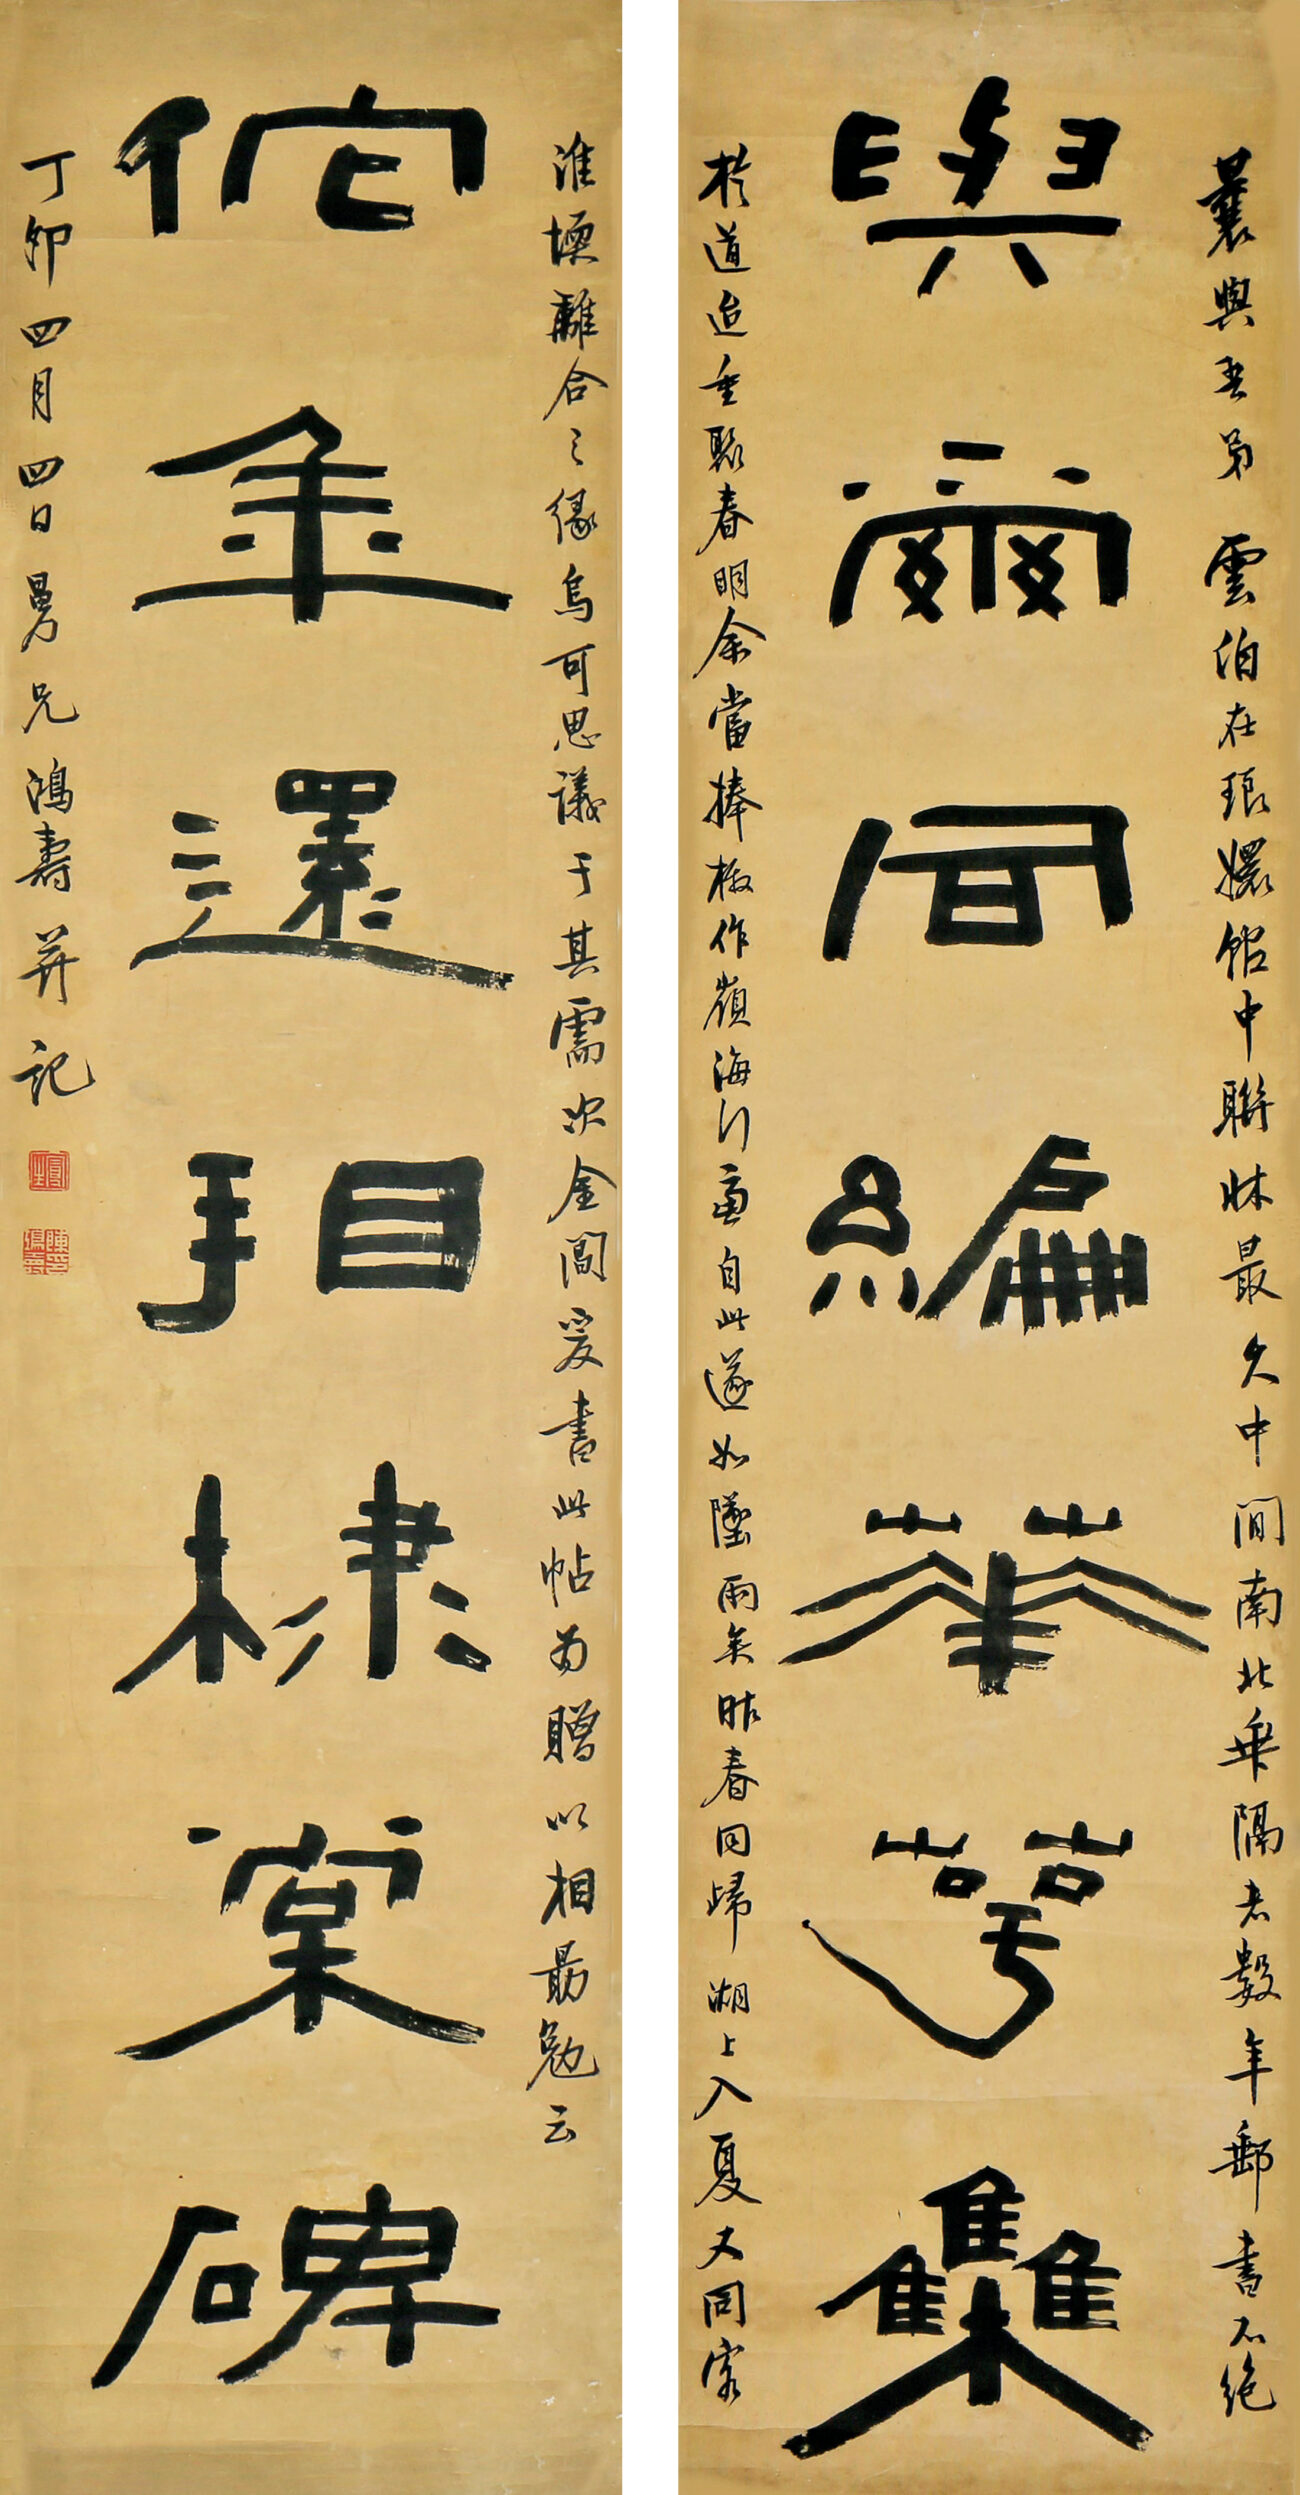 曩與吾弟雲伯在琅嬛館中聯牀最久中間南北乖隔者數年郵書不絕
與爾同編華萼集
於道迨重聚春明余當捧檄作嶺海行意自此遂如墜雨矣昨春同歸湖上入夏又同客
淮壖離合之緣烏可思議于其需次金閶爰書此帖為贈以相勗勉云
佗年還相棣棠碑
丁卯四月四日曼兄鴻壽并記
陳鴻壽印